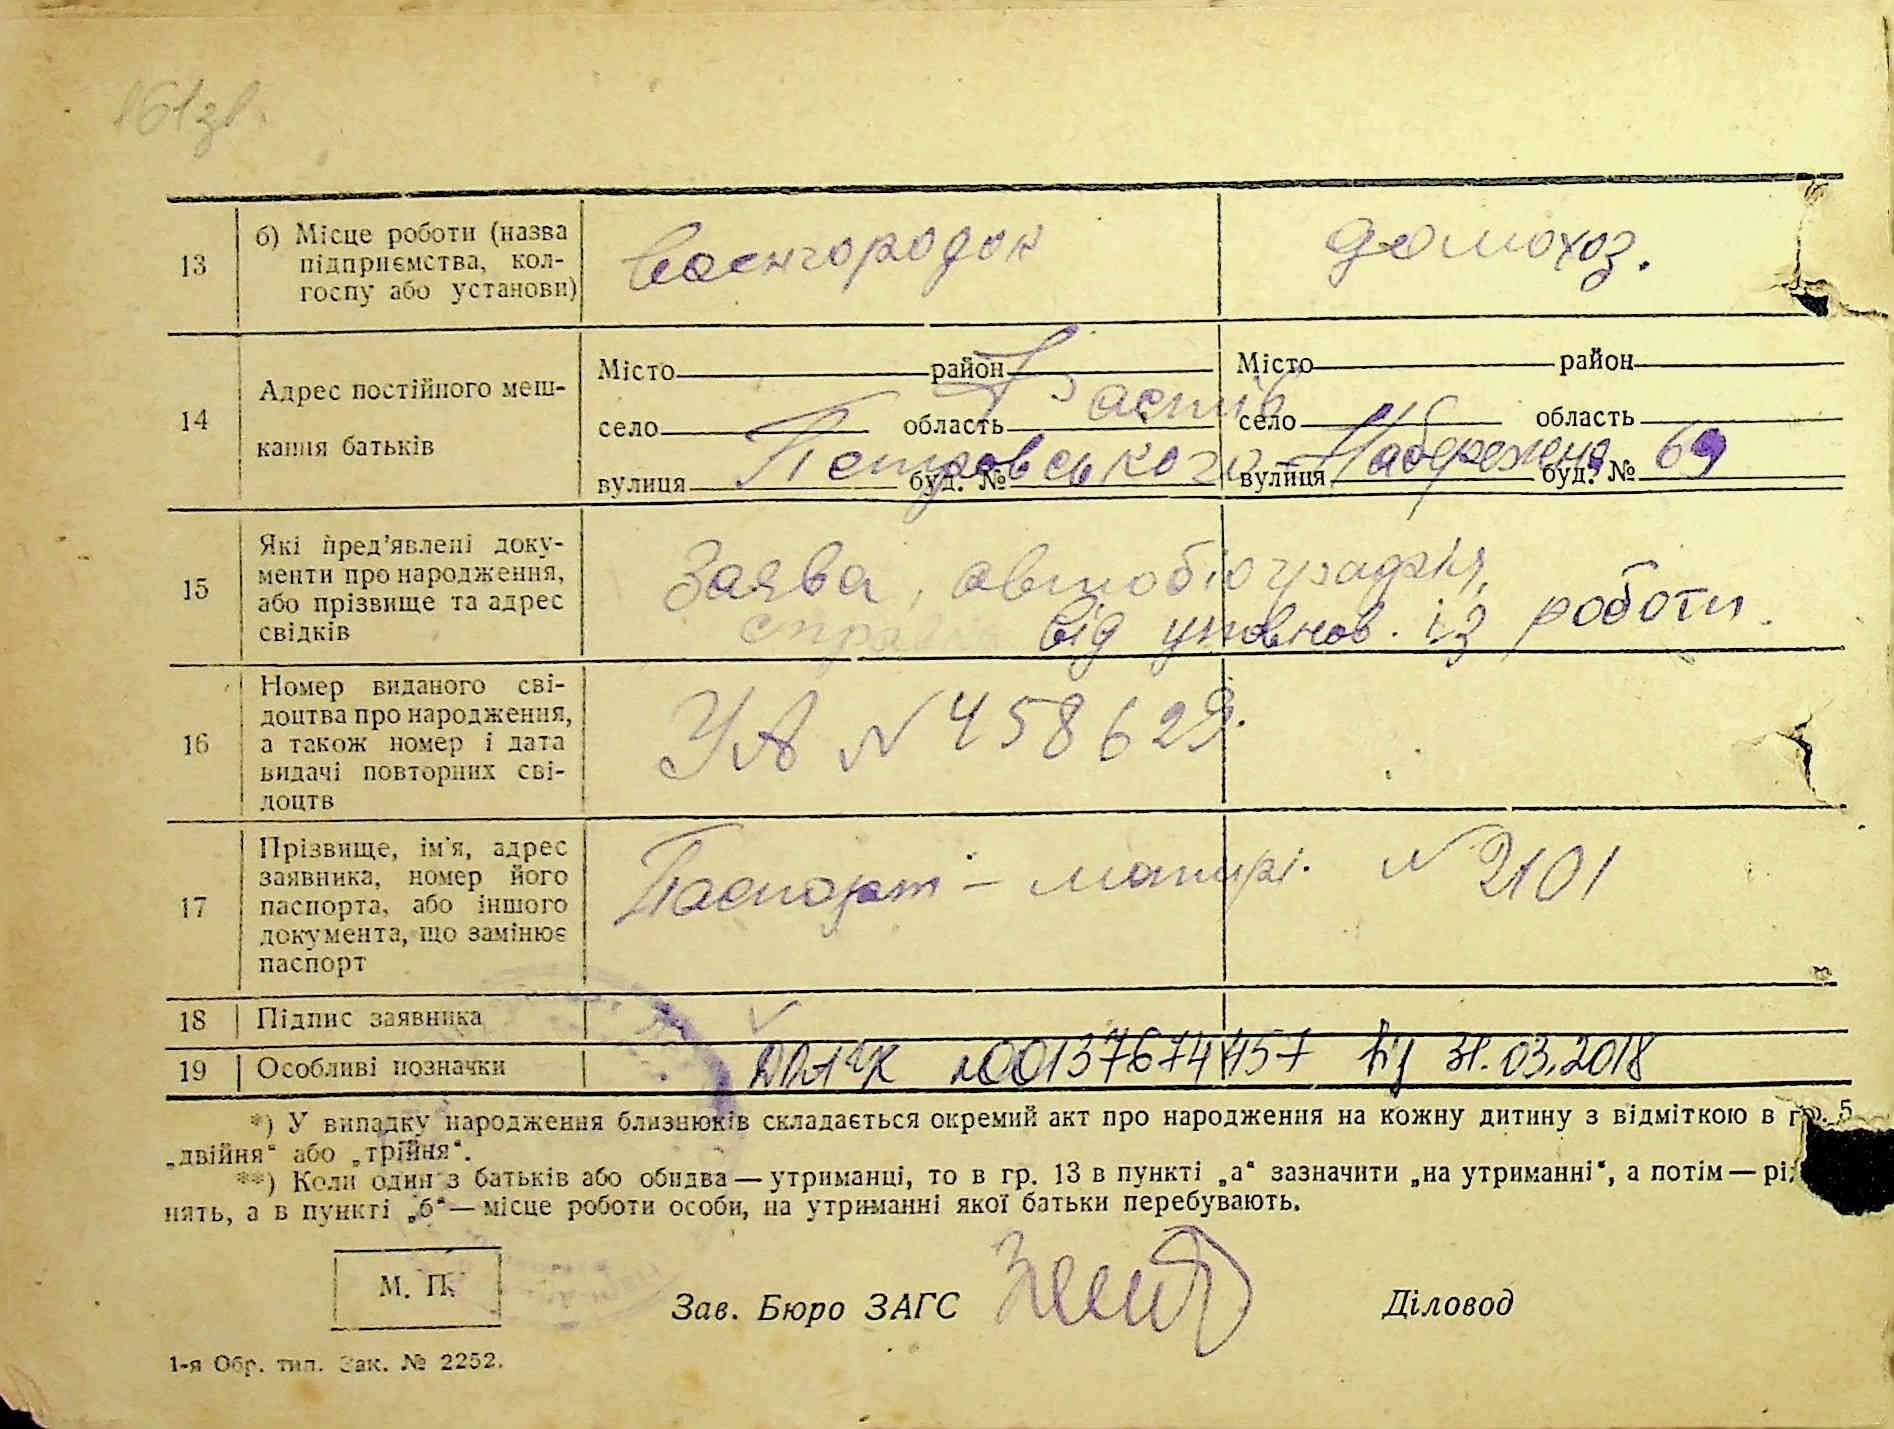 161зв.
13 б) Місце роботи (назва
підприємства, кол-
госпу або установи)
воєнгородок
домохоз.
14 Адрес постійного меш-
кання батьків
Місто район Місто район
Фастів
село область село область
Петровського Набережна 69
вулиця буд. № вулиця буд. №
15 Які пред'явлені доку-
менти про народження,
або прізвище та адрес
свідків
Заява, автобіографія,
від уповнов. із роботи.
16 Номер виданого сві-
доцтва про народження,
а також номер і дата
видачі повторних сві-
доцтв
УА № 458629.
17 Прізвище, ім'я, адрес
заявника, номер його
паспорта, або іншого
документа, що замінює
паспорт
Паспорт – матирі. № 2101
18 Підпис заявника
19 Особливі позначки
від 31.03.2018
*) У випадку народження близнюків складається окремий акт про народження на кожну дитину з відміткою в гр. 5
„двійня“ або „трійня“.
**) Коли один з батьків або обидва — утриманці, то в гр. 13 в пункті „а“ зазначити „на утриманні“, а потім —
нять, а в пункті „б“ — місце роботи особи, на утриманні якої батьки перебувають.
М. П.
Зав. Бюро ЗАГС Діловод
1-я Обр. тип. Зак. № 2252.